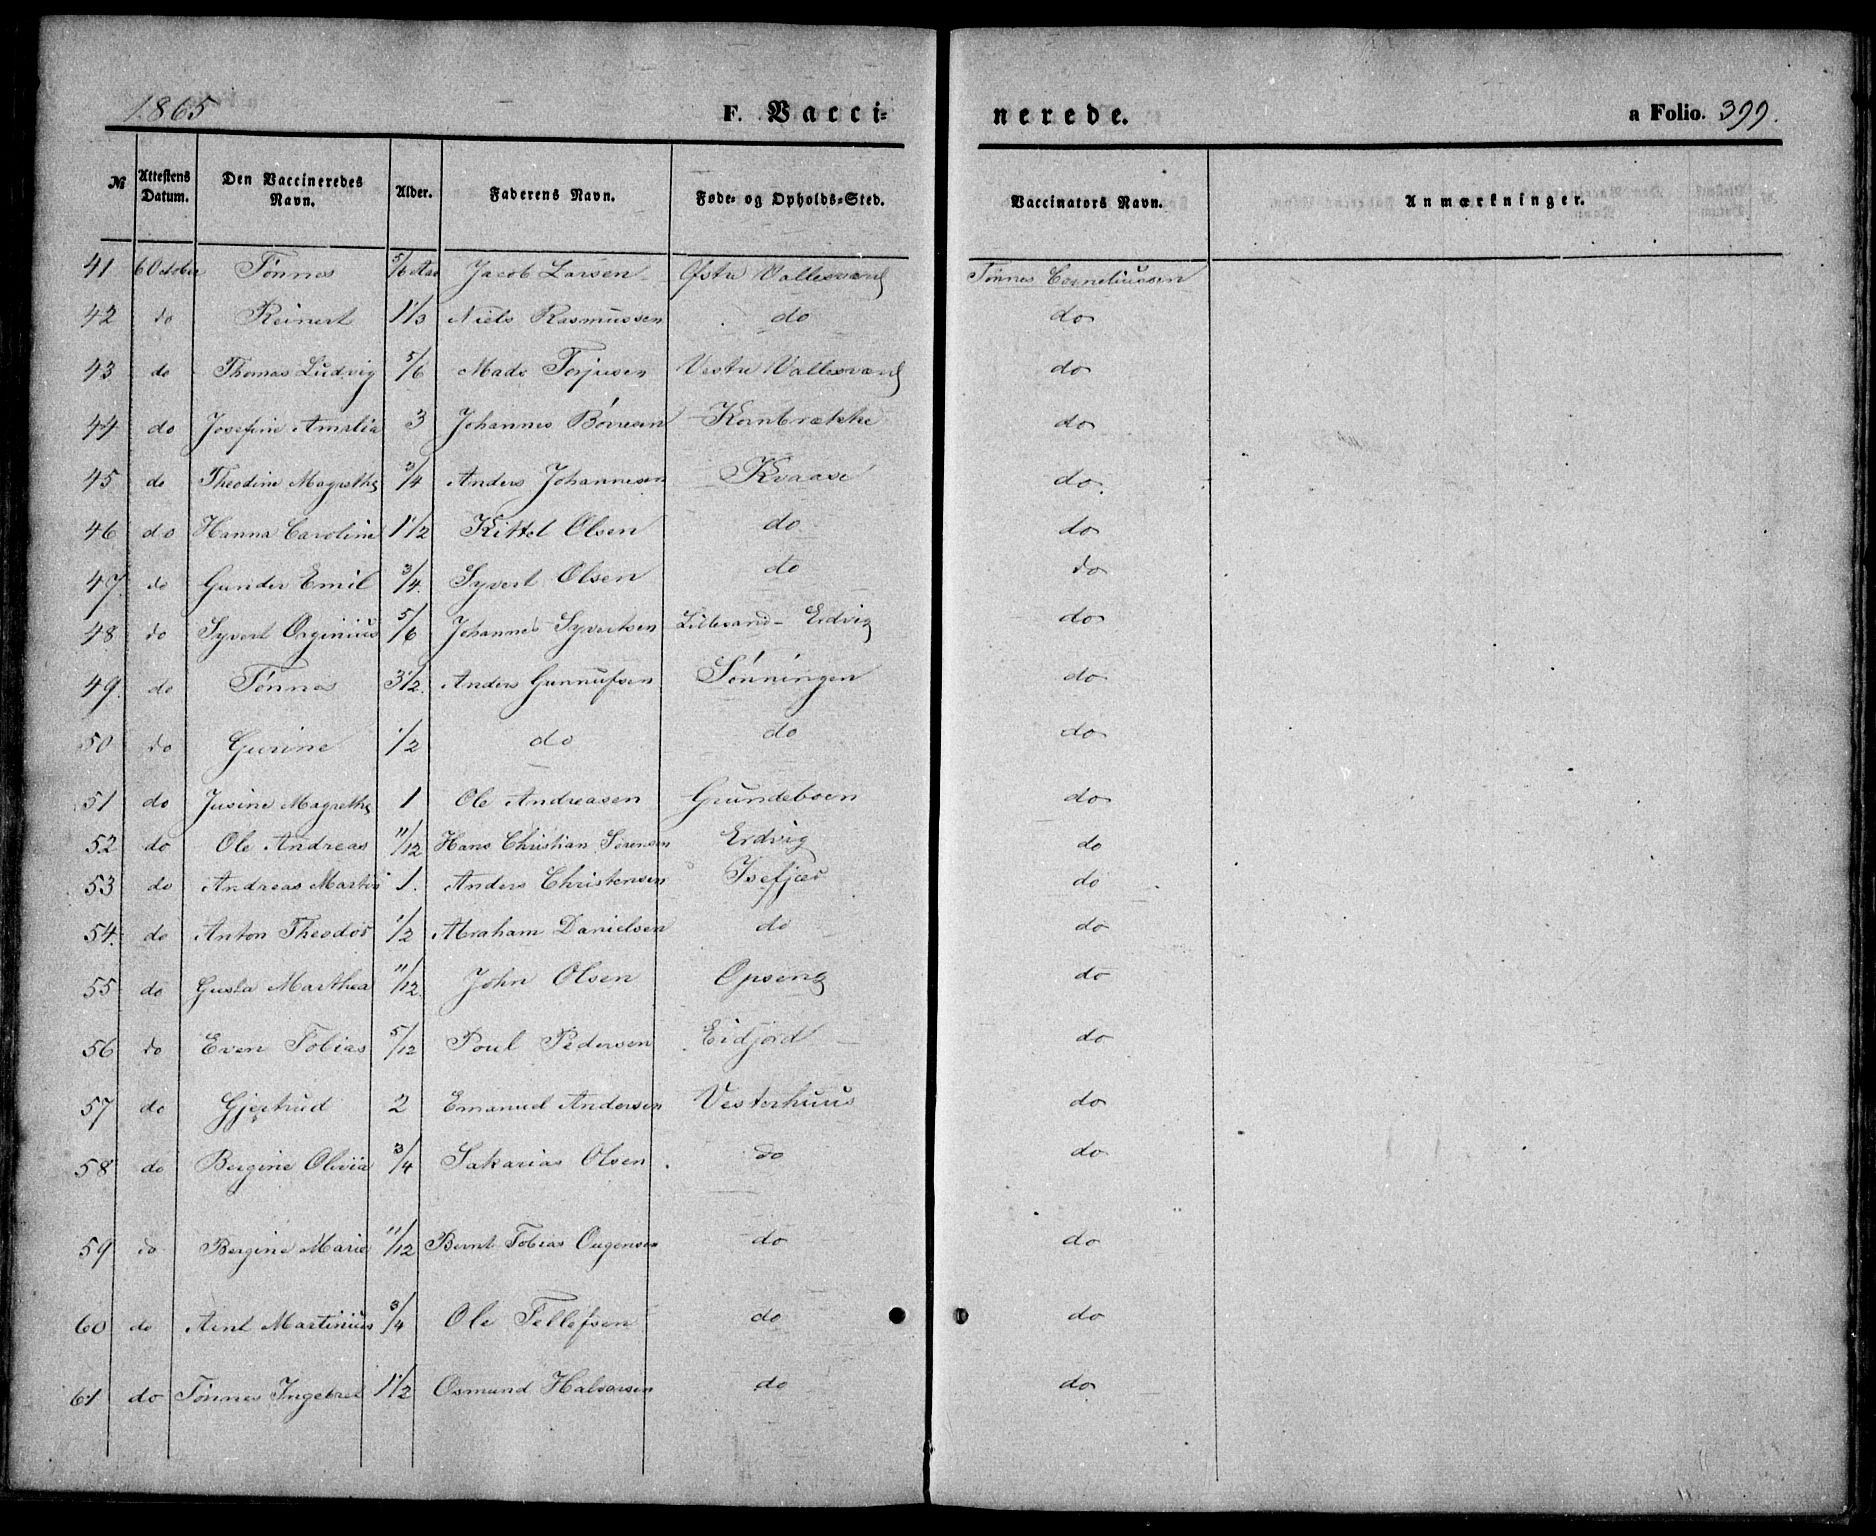 1865 F. Vacci- nerede. a Folio. 399.
№ Attestens Datum. Den Vaccineredes Navn. Alder. Faderens Navn. Føde- og Opholds-Sted. Vaccinators Navn. Anmærkninger.
41 6 October Tønnes 5/6 Aar Jacob Larsen Østre Vallesværd Tønnes Corneliussen
42 do Reinert 1 1/3 Niels Rasmussen do do
43 do Thomas Ludvig 5/6 Mads Torjusen Vestre Vallesværd do
44 do Josefine Amalia 3 Johannes Børresen Kornbrække do
45 do Theodine Magrethe 3/4 Anders Johannesen Kvaase do
46 do Hanna Caroline 1 1/2 Kittel Olsen do do
47 do Gunder Emil 3/4 Syvert Olsen do do
48 do Syvert Orginius 5/6 Johannes Syvertsen Lillesand - Erdvig do
49 do Tønnes 3 1/2 Anders Gunnufsen Sønningen do
50 do Gurine 1/2 do do do
51 do Jusine Magrethe 1 Ole Andreasen Grundeboen do
52 do Ole Andreas 11/12 Hans Christian Sørensen Erdvig do
53 do Andreas Martin 1. Anders Christensen Isefjær do
54 do Anton Theodor 1/2 Abraham Danielsen do do
55 do Gusta Marthea 11/12 John Olsen Opseng do
56 do Even Tobias 5/12 Poul Pedersen Eidjord do
57 do Gjertrud 2 Emanuel Andersen Vesterhuus do
58 do Bergine Olivia 3/4 Sakarias Olsen do do
59 do Bergine Marie 11/12 Bernt Tobias Ougensen do do
60 do Arnt Martinius 3/4 Ole Tellefsen do do
61 do Tønnes Ingebret 1 1/2 Osmund Halvorsen do do